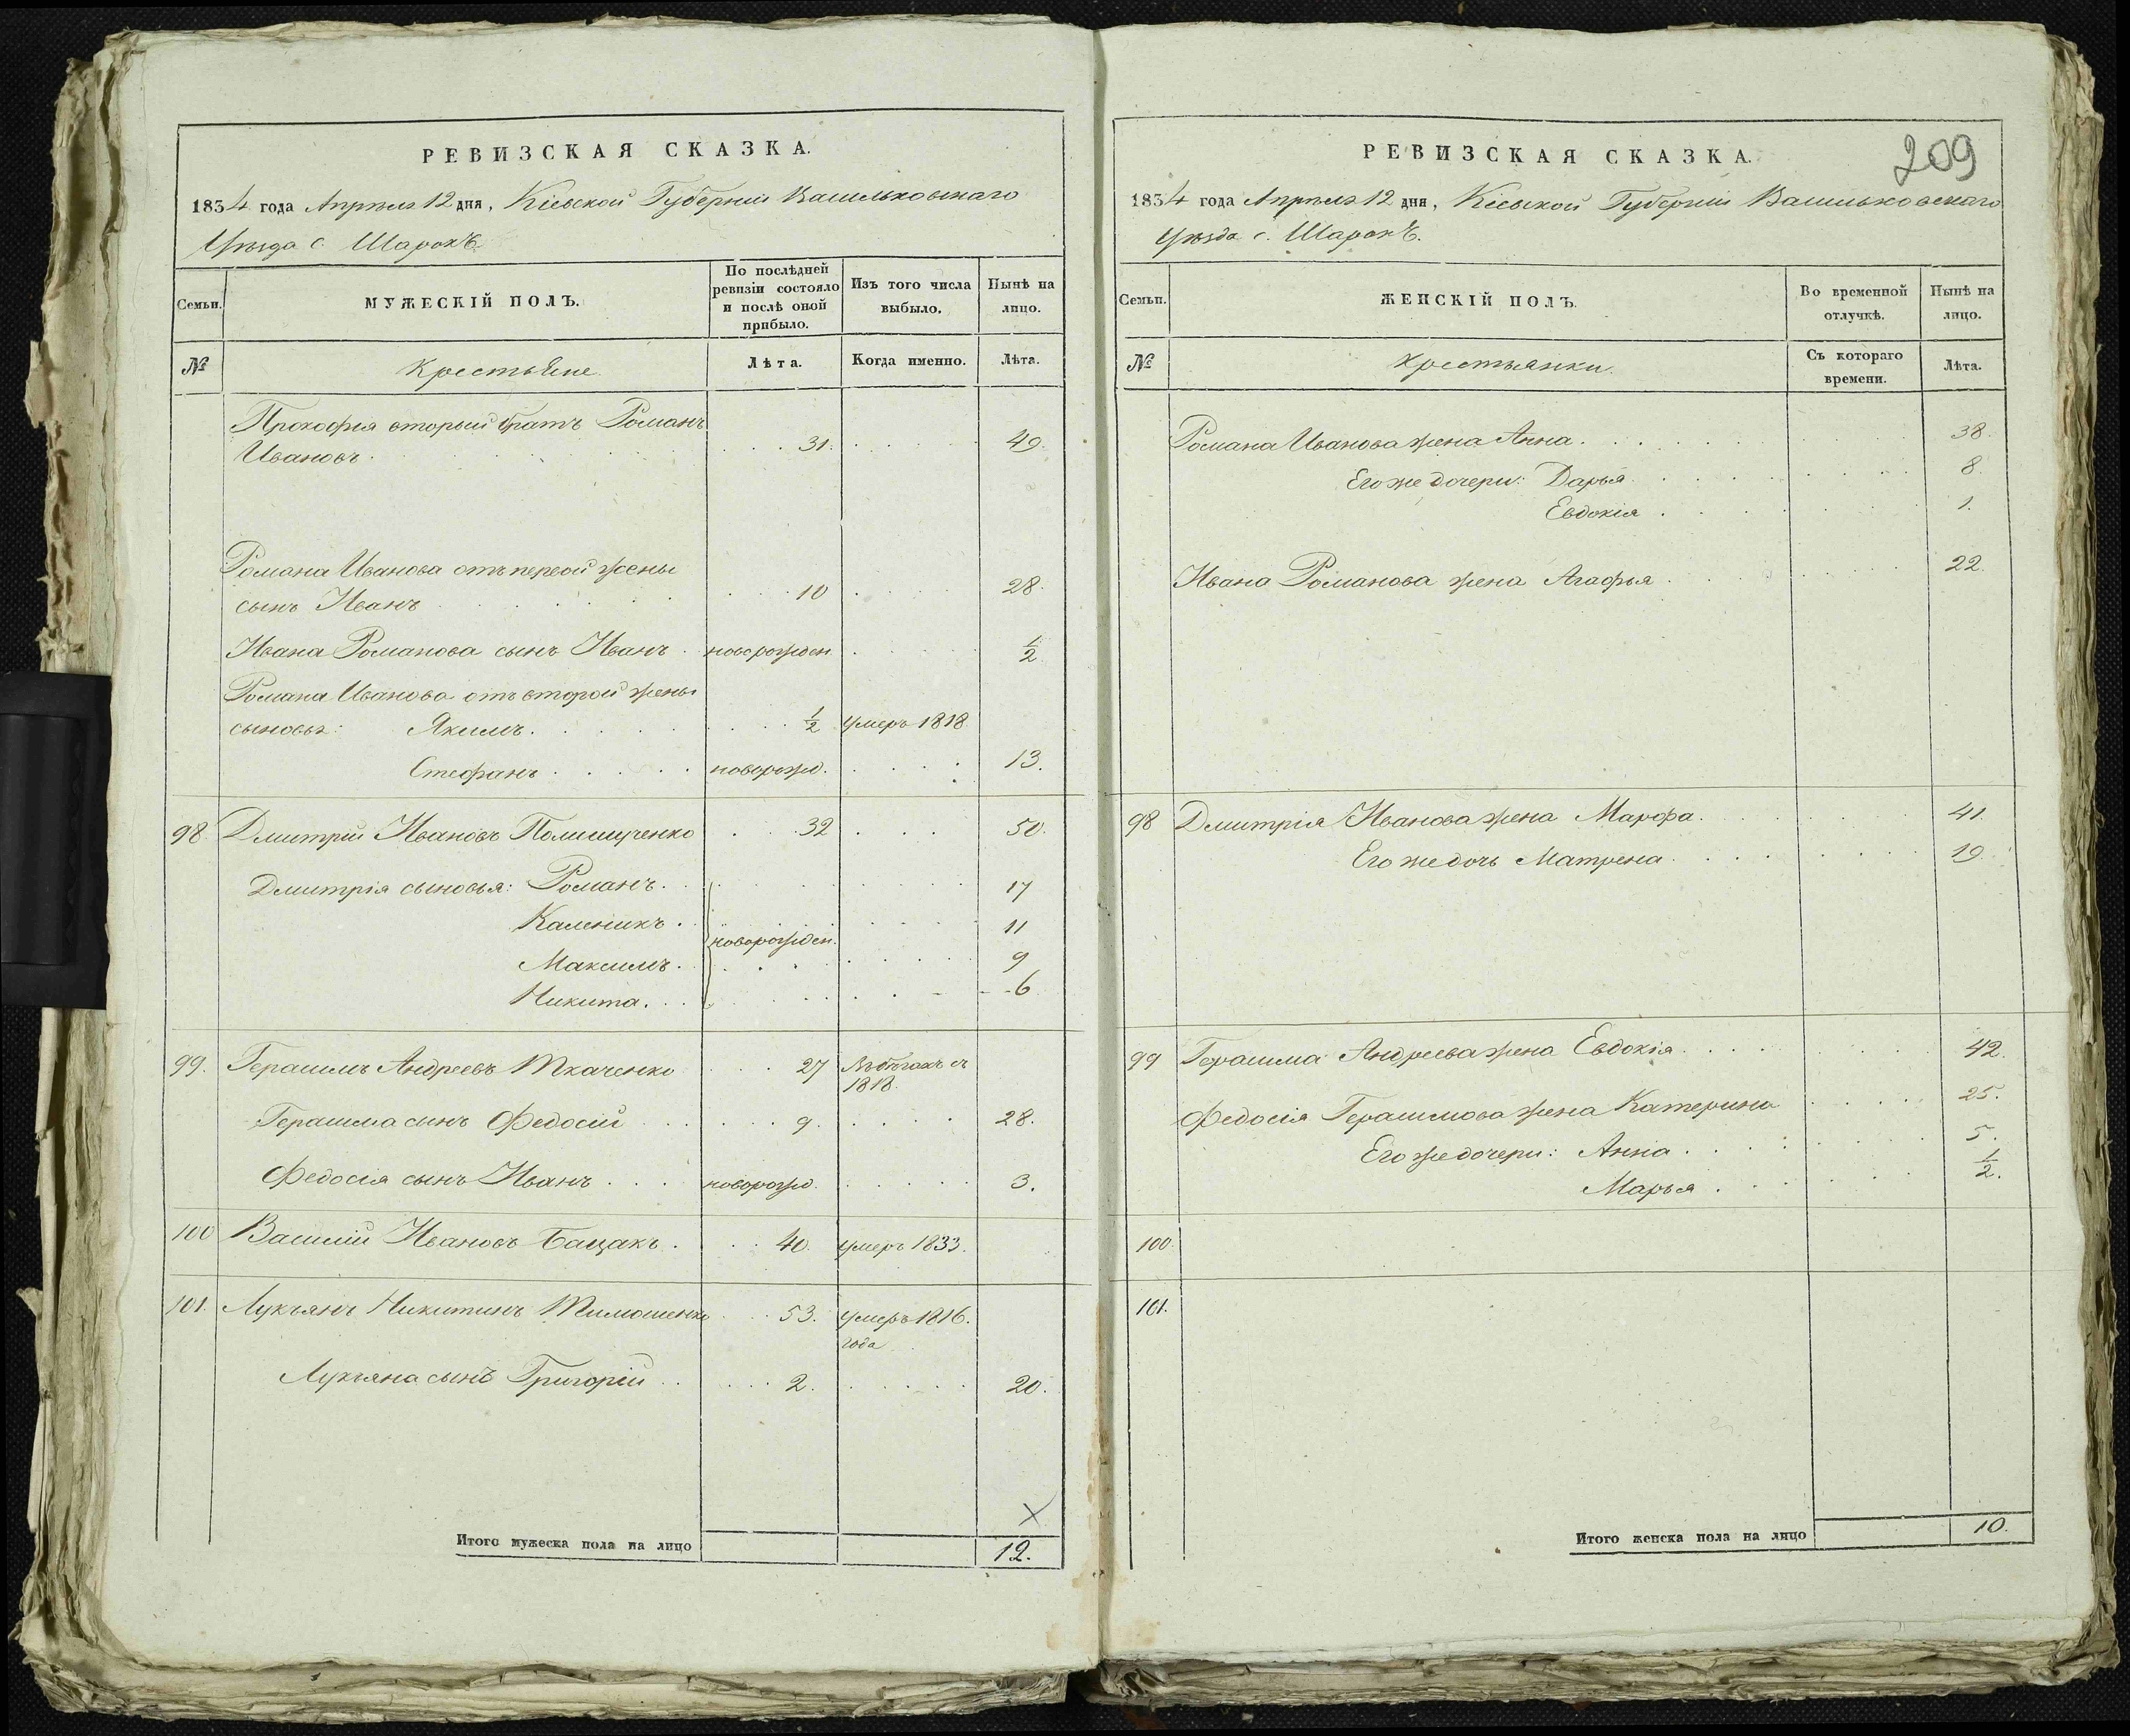 РЕВИЗСКАЯ СКАЗКА.
1834 года Апрѣля 12 дня, Кіевской Губерніи Васильковскаго
Уѣзда с. Шарокъ
Семьи.
МУЖЕСКІЙ ПОЛЪ.
По послѣдней ревизіи состояло и послѣ оной прибыло.
Изъ того числа выбыло.
Нынѣ на лицо.
№
Крестьяне
Лѣта.
Когда именно.
Лѣта.
Прокофья вторый братъ Романъ
Ивановъ. 31. 49.
Романа Иванова отъ первой жены
сынъ Иванъ 10 28.
Ивана Романова сынъ Иванъ новорожден ½
Романа Иванова отъ второй жены
сыновья: Якимъ. ½ умеръ 1818
Стефанъ новорожд. 13.
98. Дмитрій Ивановъ Полищученко 32 50.
Дмитрія сыновья: Романъ. 17
Каленикъ. 11
новорожден.
Максимъ. 9
Никита. 6
99. Герасимъ Андреевъ Ткаченко 27 Въ бѣгахъ съ
1818.
Герасима сынъ Федосій 9. 28.
Федосія сынъ Иванъ новорожд. 3.
100 Василій Ивановъ Бацакъ. 40. умеръ 1833.
101. Лукъянъ Никитинъ Тимошенко 53. умеръ 1816.
года
Лукъяна сынъ Григорій 2. 20.
Х
Итого мужеска пола на лицо 12.
209
РЕВИЗСКАЯ СКАЗКА.
1834 года Апрѣля 12 дня, Кіевской Губерніи Васильковскаго
Уѣзда с. Шарокъ.
Семьи.
ЖЕНСКІЙ ПОЛЪ.
Во временной отлучкѣ.
Нынѣ на лицо.
№
Крестьянки.
Съ котораго времени.
Лѣта.
Романа Иванова жена Анна. 38.
Его же дочери: Дарья 8.
Евдокія 1.
Ивана Романова жена Агафья 22.
98 Дмитрія Иванова жена Марфа. 41.
Его же дочь Матрена 19
99 Герасима Андреева жена Евдокія 42.
Федосія Герасимова жена Катерина 25.
Его же дочери: Анна 5.
Марья ½.
100.
101.
Итого женска пола на лицо 10.